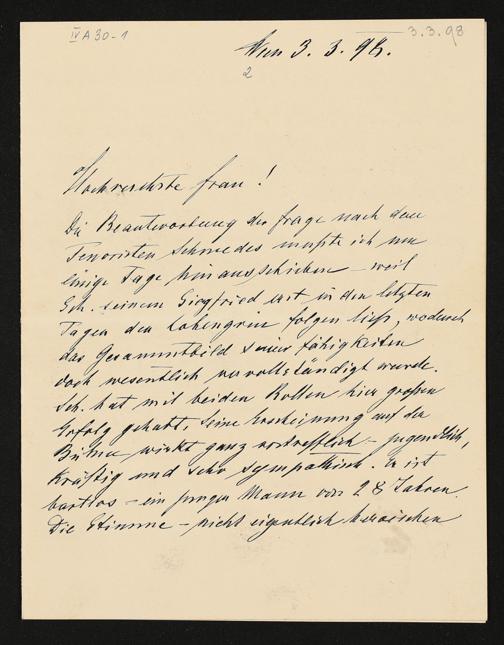 IV A 30-1
3.3.98
Wien 3. 3. 98.
2
Hochverehrte Frau!
Die Beantwortung der Frage nach dem
Tenoristen Schmedes mußte ich um
einige Tage hinausschieben – weil
Sch. seinem Siegfried erst in den letzten
Tagen den Lohengrin folgen ließ, wodurch
das Gesammtbild seiner Fähigkeiten
doch wesentlich vervollständigt wurde.
Sch. hat mit beiden Rollen hier großen
Erfolg gehabt. Seine Erscheinung auf der
Bühne wirkt ganz vortrefflich – jugendlich,
kräftig und sehr sympathisch. Er ist
bartlos – ein junger Mann von 28 Jahren.
Die Stimme – nicht eigentlich heroischen